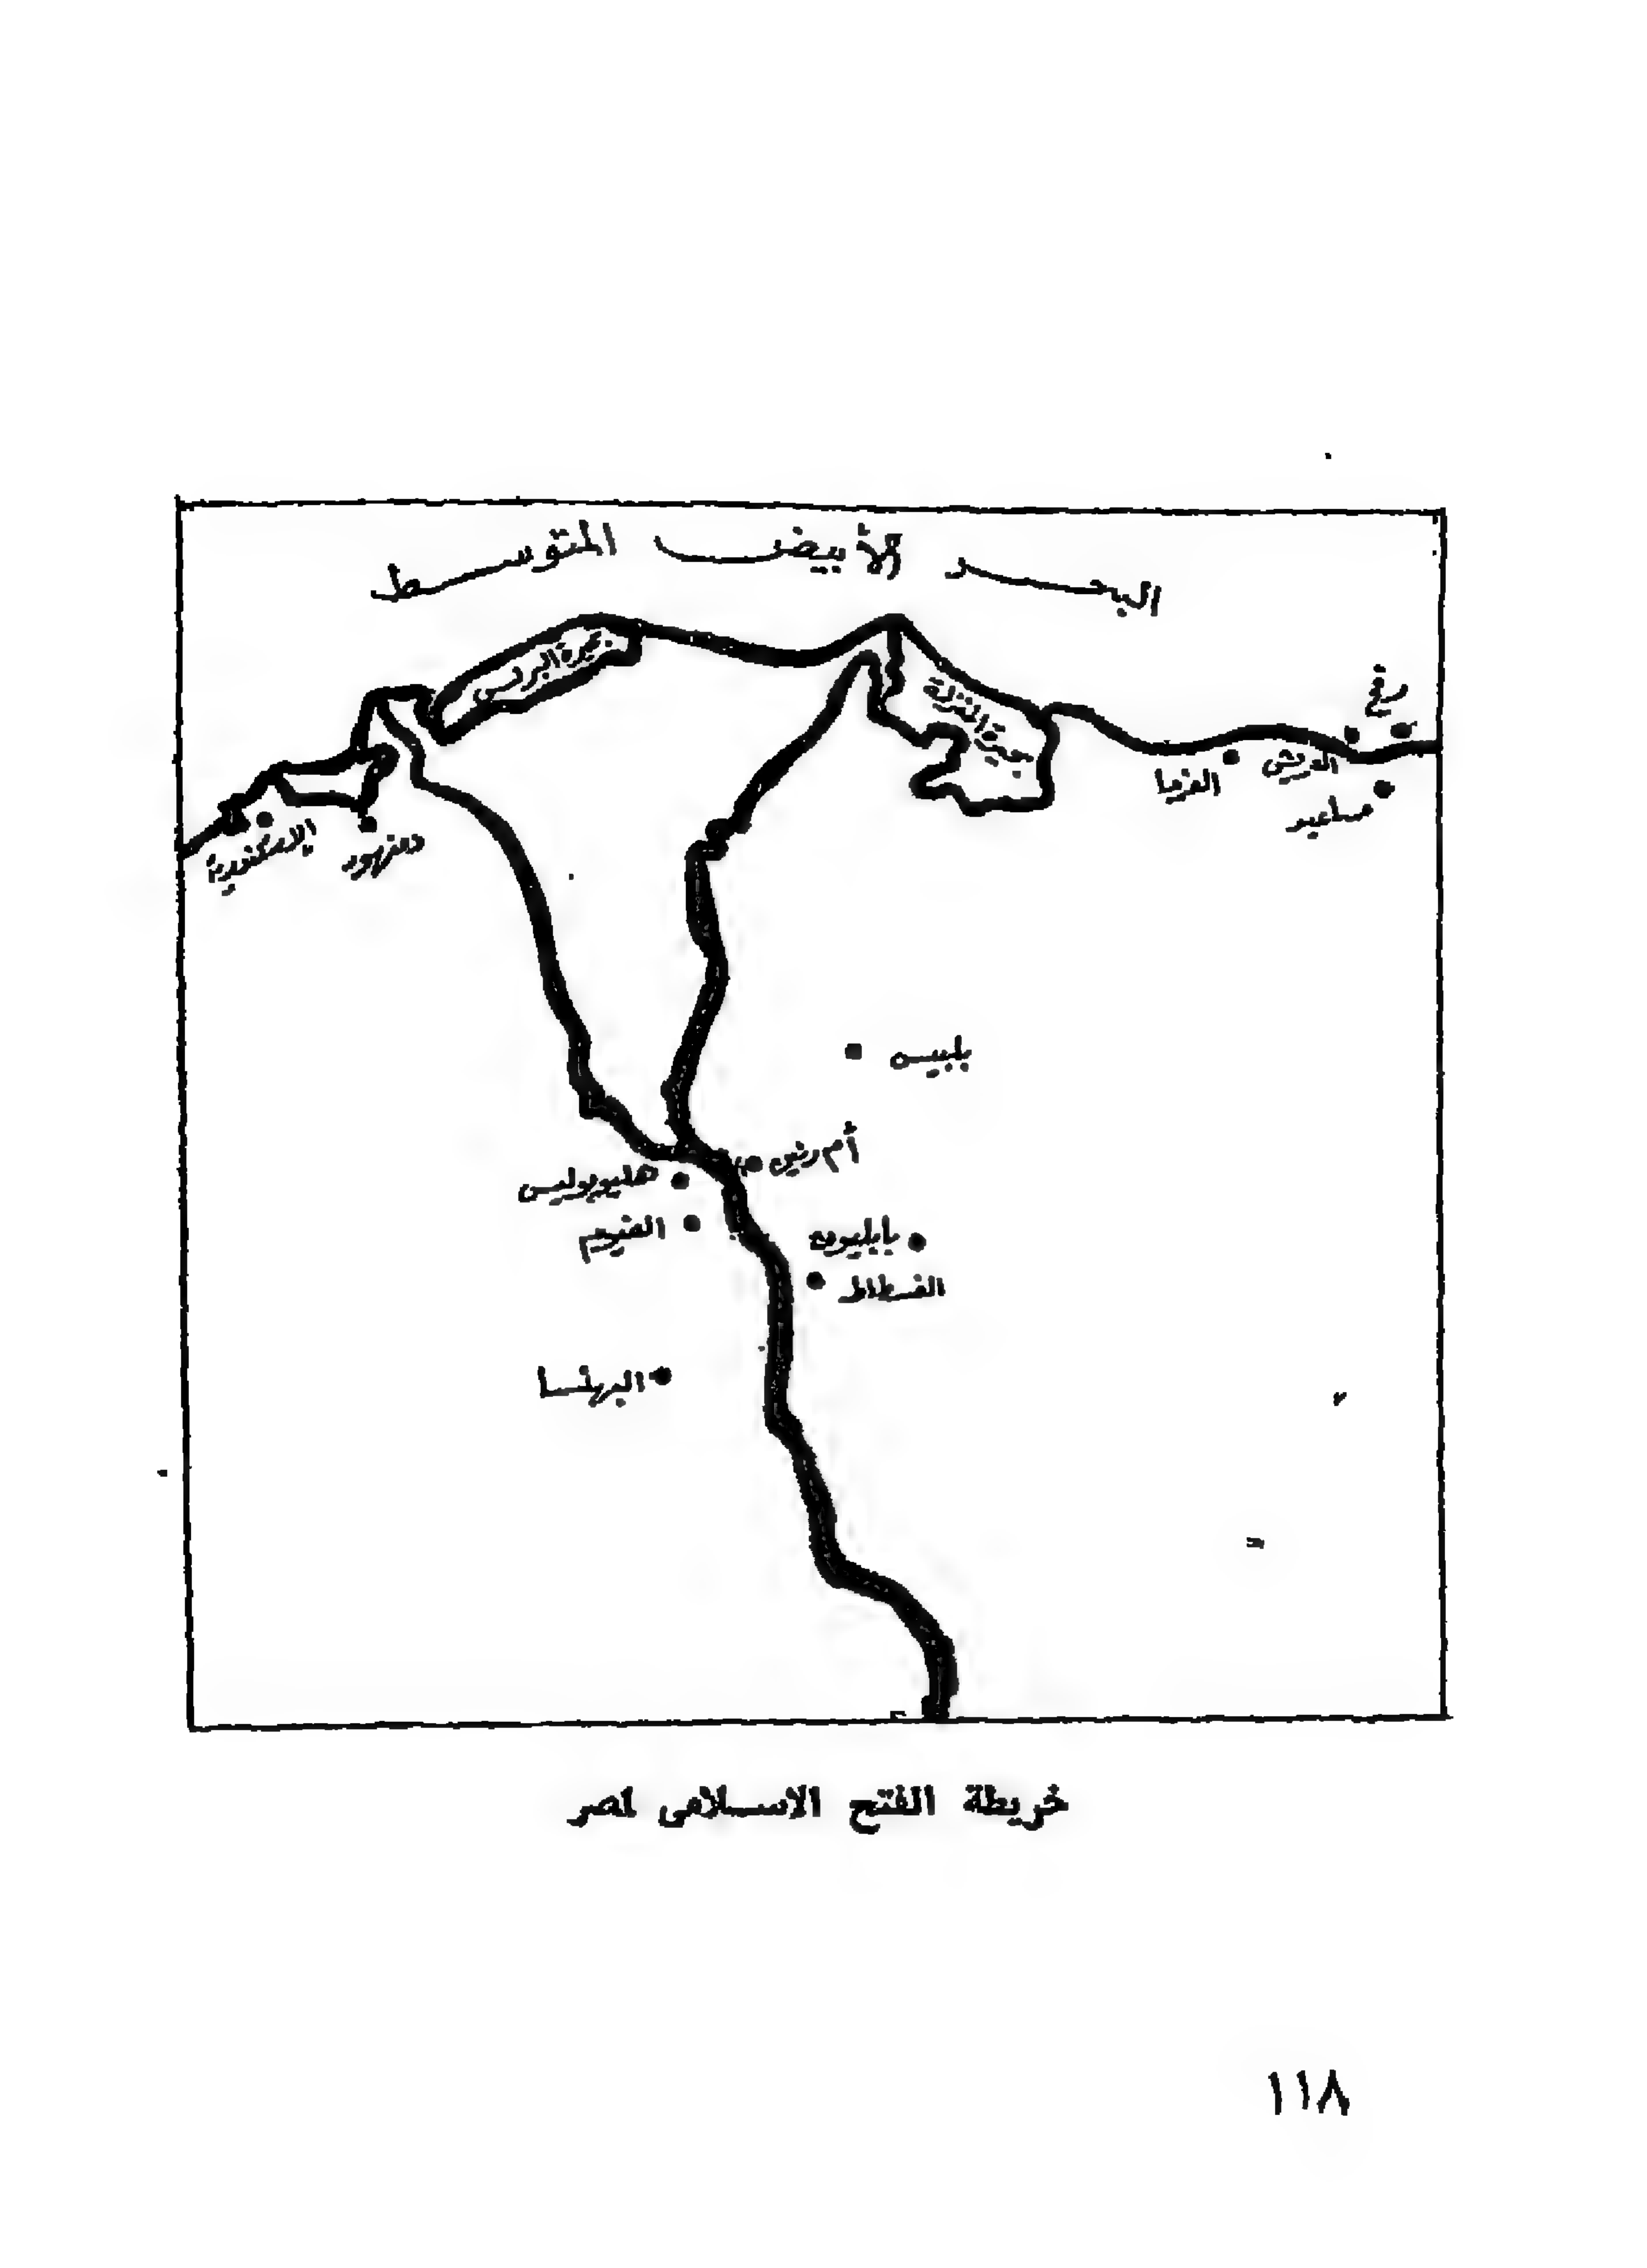 البحر الأبيض المتوسط
بحيرة البرلس
بحيرة المنزلة
رفح
العريش
الفرما
مساعيد
الاسكندرية
دمنهور
بلبيس
أم دنين
هليوبوليس
الفيوم
بابليون
الفسطاط
البهنسا
خريطة الفتح الاسلامى لمصر
١١٨